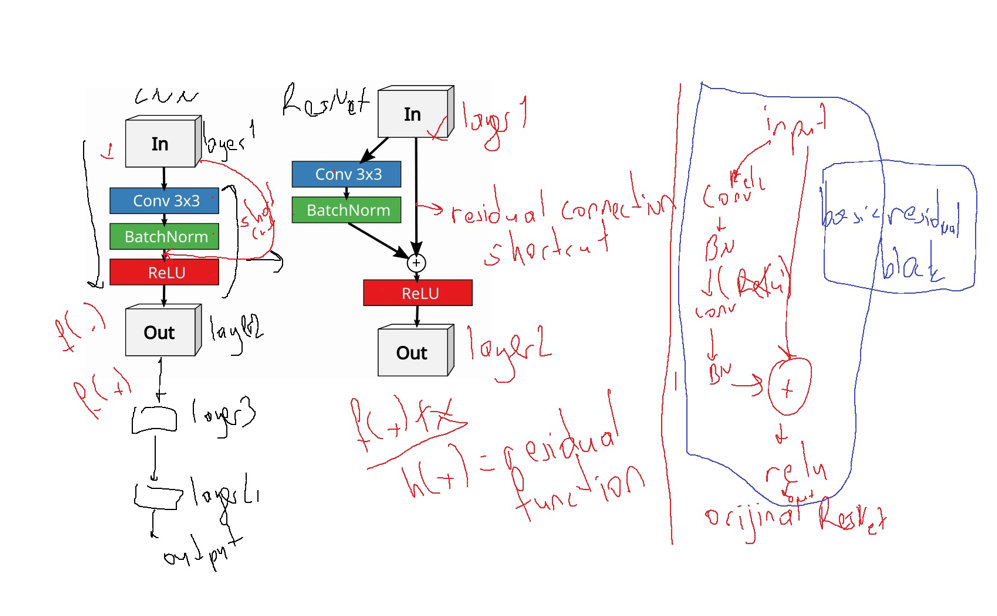 CNN
In
layer1
Conv 3x3
BatchNorm
ReLU
short
cut
Out
layer2
f(x)
layer3
layer4
output
ResNet
In
layer1
Conv 3x3
BatchNorm
residual connection
shortcut
+
ReLU
Out
layer2
f(x)+x
h(x) = residual
function
input
Conv
BN
(Relu)
conv
BN
+
relu
out
orijinal ResNet
basic residual
block